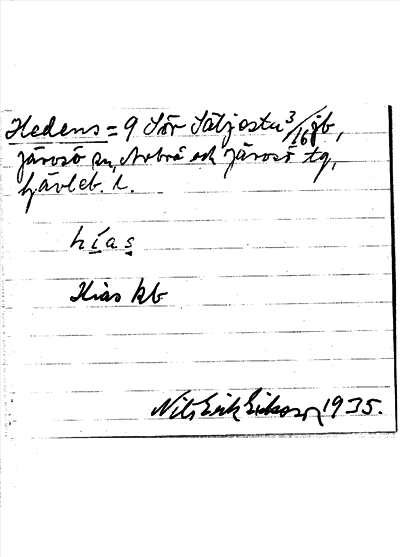 Hedens = 9 Sör Sätjestu 3/16 jb,
Järvsö sn, Arbrå och Järvsö tg,
Gävleb. l.
hías
Hias kb
Nils Erik Eriksson 1935.